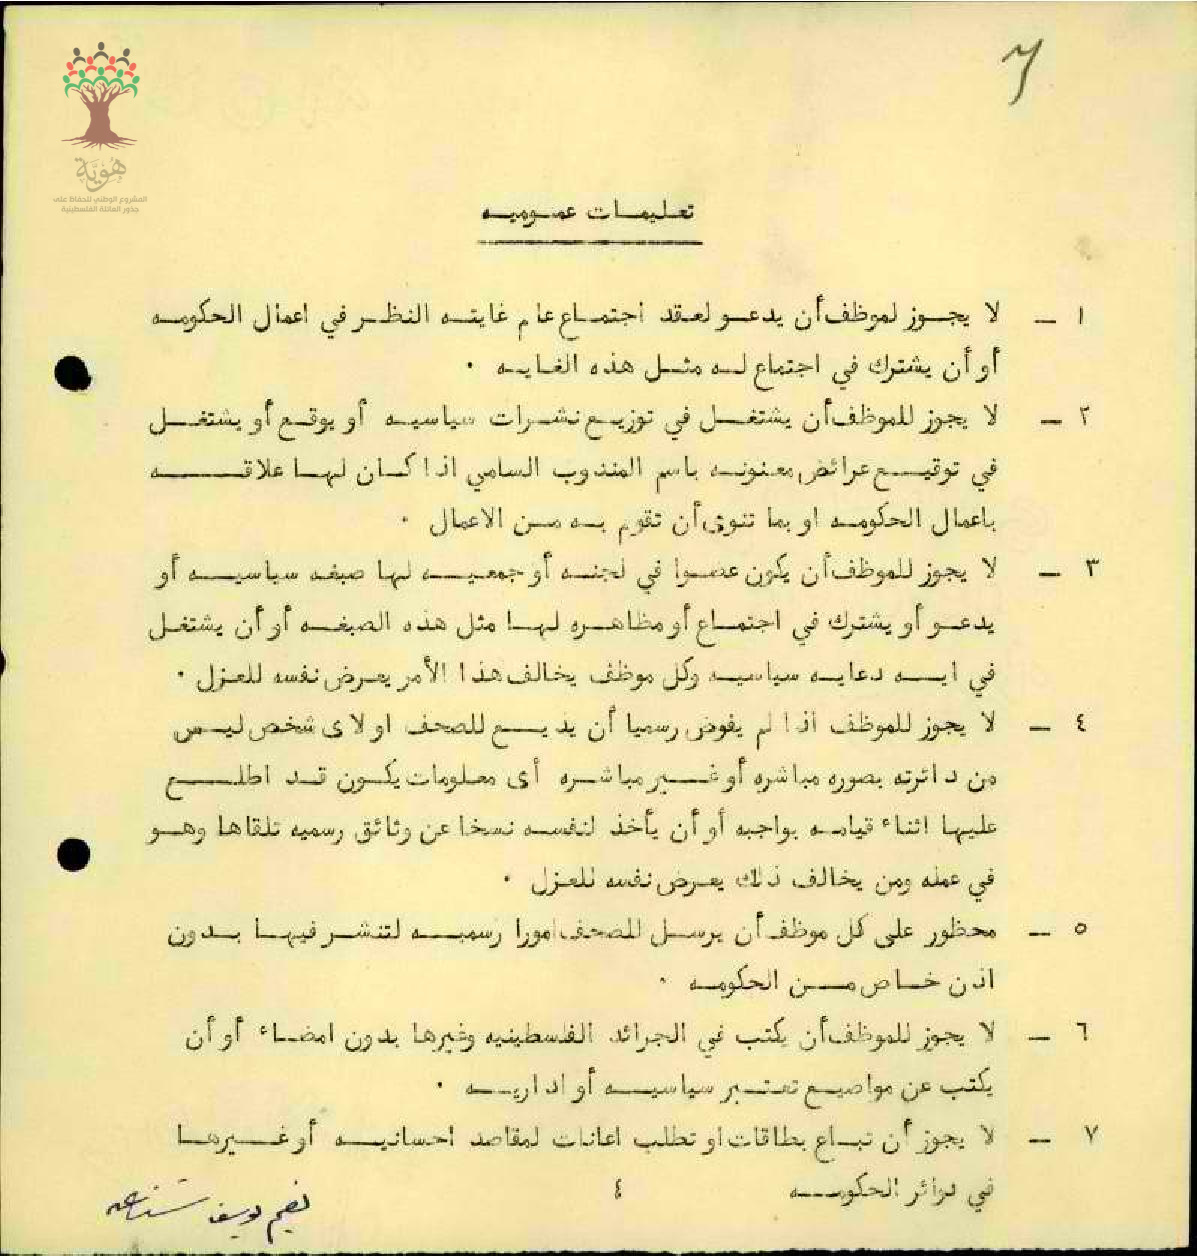 هُويَّة
المشروع الوطني للحفاظ على
جذور العائلة الفلسطينية
تعليمات عموميه
١ — لا يجوز لموظف أن يدعو لعقد اجتماع عام غايته النظر في اعمال الحكومه
أو أن يشترك في اجتماع له مثل هذه الغايه .
٢ — لا يجوز للموظف أن يشتغل في توزيع نشرات سياسيه أو يوقع أو يشتغل
في توقيع عرائض معنونه باسم المندوب السامي اذا كان لها علاقه
باعمال الحكومه او بما تنوى أن تقوم به من الاعمال .
٣ — لا يجوز للموظف أن يكون عضوا في لجنه أو جمعيه لها صبغه سياسيه أو
يدعو أو يشترك في اجتماع أو مظاهره لها مثل هذه الصبغه أو أن يشتغل
في ايه دعايه سياسيه وكل موظف يخالف هذا الأمر يعرض نفسه للعزل .
٤ — لا يجوز للموظف اذا لم يفوض رسميا أن يذيع للصحف او لاى شخص ليس
من دائرته بصوره مباشره أو غير مباشره أى معلومات يكون قد اطلع
عليها اثناء قيامه بواجبه أو أن يأخذ لنفسه نسخا عن وثائق رسميه تلقاها وهو
في عمله ومن يخالف ذلك يعرض نفسه للعزل .
٥ — محظور على كل موظف أن يرسل للصحف امورا رسميه لتنشر فيها بدون
اذن خاص من الحكومه .
٦ — لا يجوز للموظف أن يكتب في الجرائد الفلسطينيه وغيرها بدون امضاء أو أن
يكتب عن مواضيع تعتبر سياسيه أو اداريه .
٧ — لا يجوز أن تباع بطاقات او تطلب اعانات لمقاصد احسانيه أو غيرها
في دوائر الحكومه
٤
نعيم يوسف